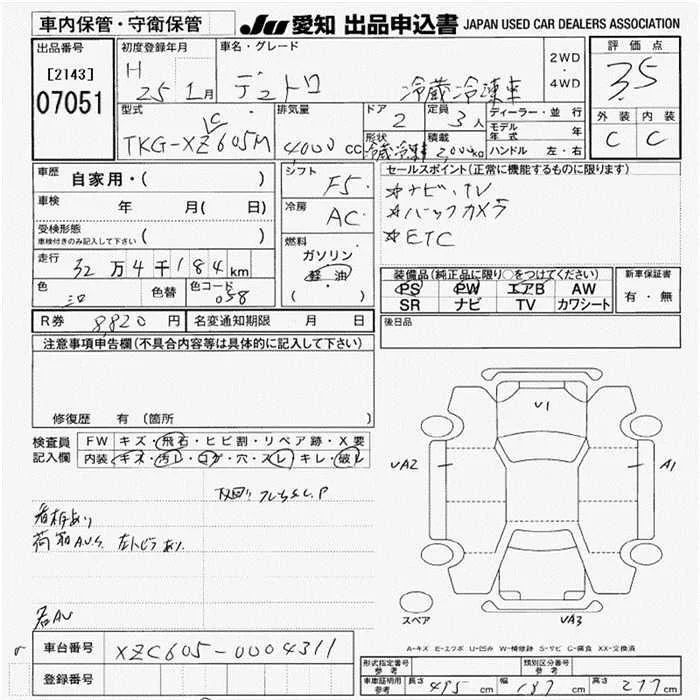 車内保管・守衛保管
JU 愛知 出品申込書 JAPAN USED CAR DEALERS ASSOCIATION
出品番号
[2143]
07051
初度登録年月
H
25 1月
車名・グレード
デュトロ 冷蔵冷凍車
2WD
・
4WD
評価点
3.5
型式
TKG-XZC605M
排気量
4000 cc
ドア
2
定員
3人
形状
冷蔵冷凍車
積載
2,000kg
ディーラー・並行
モデル年式 年
ハンドル 左・右
外装 内装
C C
車歴
自家用・( )
車検
年 月( 日)
受検形態
車検付きのみ記入して下さい ( )
走行
32万4千184km
色
色替
色コード
058
シフト
F5
冷房
AC
燃料
ガソリン
軽油
( )
セールスポイント(正常に機能するものに限ります)
☆ナビ・TV
☆バックカメラ
☆ETC
装備品(純正品に限り○をつけてください)
PS PW エアB AW
SR ナビ TV カワシート
新車保証書
有・無
R券 8,820円 名変通知期限 月 日
後日品
注意事項申告欄(不具合内容等は具体的に記入して下さい)
修復歴 有(箇所 )
検査員
記入欄
FW キズ・飛石・ヒビ割・リペア跡・X要
内装 キズ・汚レ・コゲ・穴・スレ・キレ・破レ
看板あり
荷箱AU.S
右AU
U1
UA2
A1
UA3
スペア
A-キズ E-エクボ U-凹み W-補修跡 S-サビ C-腐食 XX-交換済
車台番号 XZC605-0004311
登録番号
形式指定番号
参考
類別区分番号
参考
車庫証明用
参考
長さ 495 cm 幅 187 cm 高さ 277 cm